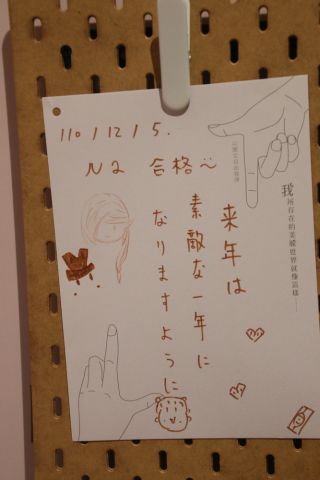 110/12/5.
N2 合格〜
来年は
素敵な一年に
なりますように
我所存在的美麗世界就像這樣——